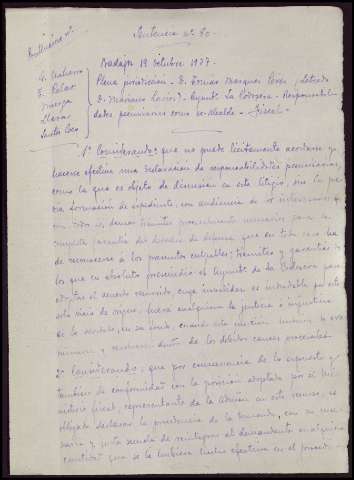 Sentencia nº 80.
Badajoz 19 octubre 1937.
Plena jurisdicción - D. Tomás Marques Pérez, Letrado
D. Mariano - Ayunt. La Codosera - Responsabili-
dades pecuniarias como ex-Alcalde - Fiscal -
1º Considerando: que no puede lícitamente acordarse y
hacerse efectiva una declaración de responsabilidades pecuniarias,
como la que es objeto de discusión en este litigio, sin la pre-
via formación de expediente, con audiencia de
con todos los demás trámites procesalmente necesarios para la
completa garantía del derecho de defensa, que en todo caso ha
de reconocerse a los presuntos culpables; trámites y garantías de
los que en absoluto prescindió el Ayunt. de La Codosera para
adoptar el acuerdo recurrido, cuya invalidez es indudable por este
solo vicio de origen, fuera cualquiera la justicia o injusticia
de lo acordado, en su fondo, cuando esta cuestión hubiera de exa-
minarse y resolverse dentro de los debidos cauces procesales.
2º Considerando: que por consecuencia de lo expuesto y
también de conformidad con la posición adoptada por el Mi-
nisterio fiscal, representante de la Admón en este recurso, es
obligado declarar la procedencia de la demanda, con su nece-
saria y justa secuela de reintegrar al demandante en cualquiera
cantidad que se le hubiera hecho efectiva en el